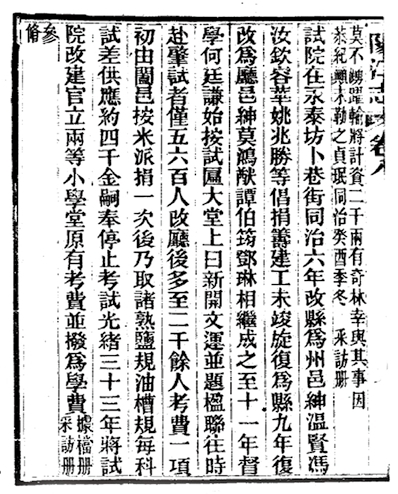 陽江志卷八
莫不踴躍輸將計資二千兩有奇林幸與其事因
恭紀顛末勒之貞珉同治癸酉季冬　采訪册
試院在永泰坊卜巷街同治六年改縣爲州邑紳温賢馮
汝欽容華姚兆勝等倡捐籌建工未竣旋復爲縣九年復
改爲廳邑紳莫鴻猷譚伯筠鄧琳相繼成之至十一年督
學何廷謙始按試匾大堂上曰新開文運並題楹聯往時
赴肇試者僅五六百人改廳後多至二千餘人考費一項
初由闔邑按米派捐一次後乃取諸熟鹽規油槽規每科
試差供應約四千金嗣奉停止考試光緒三十三年將試
院改建官立兩等小學堂原有考費並撥爲學費據檔册
采訪册
參
脩